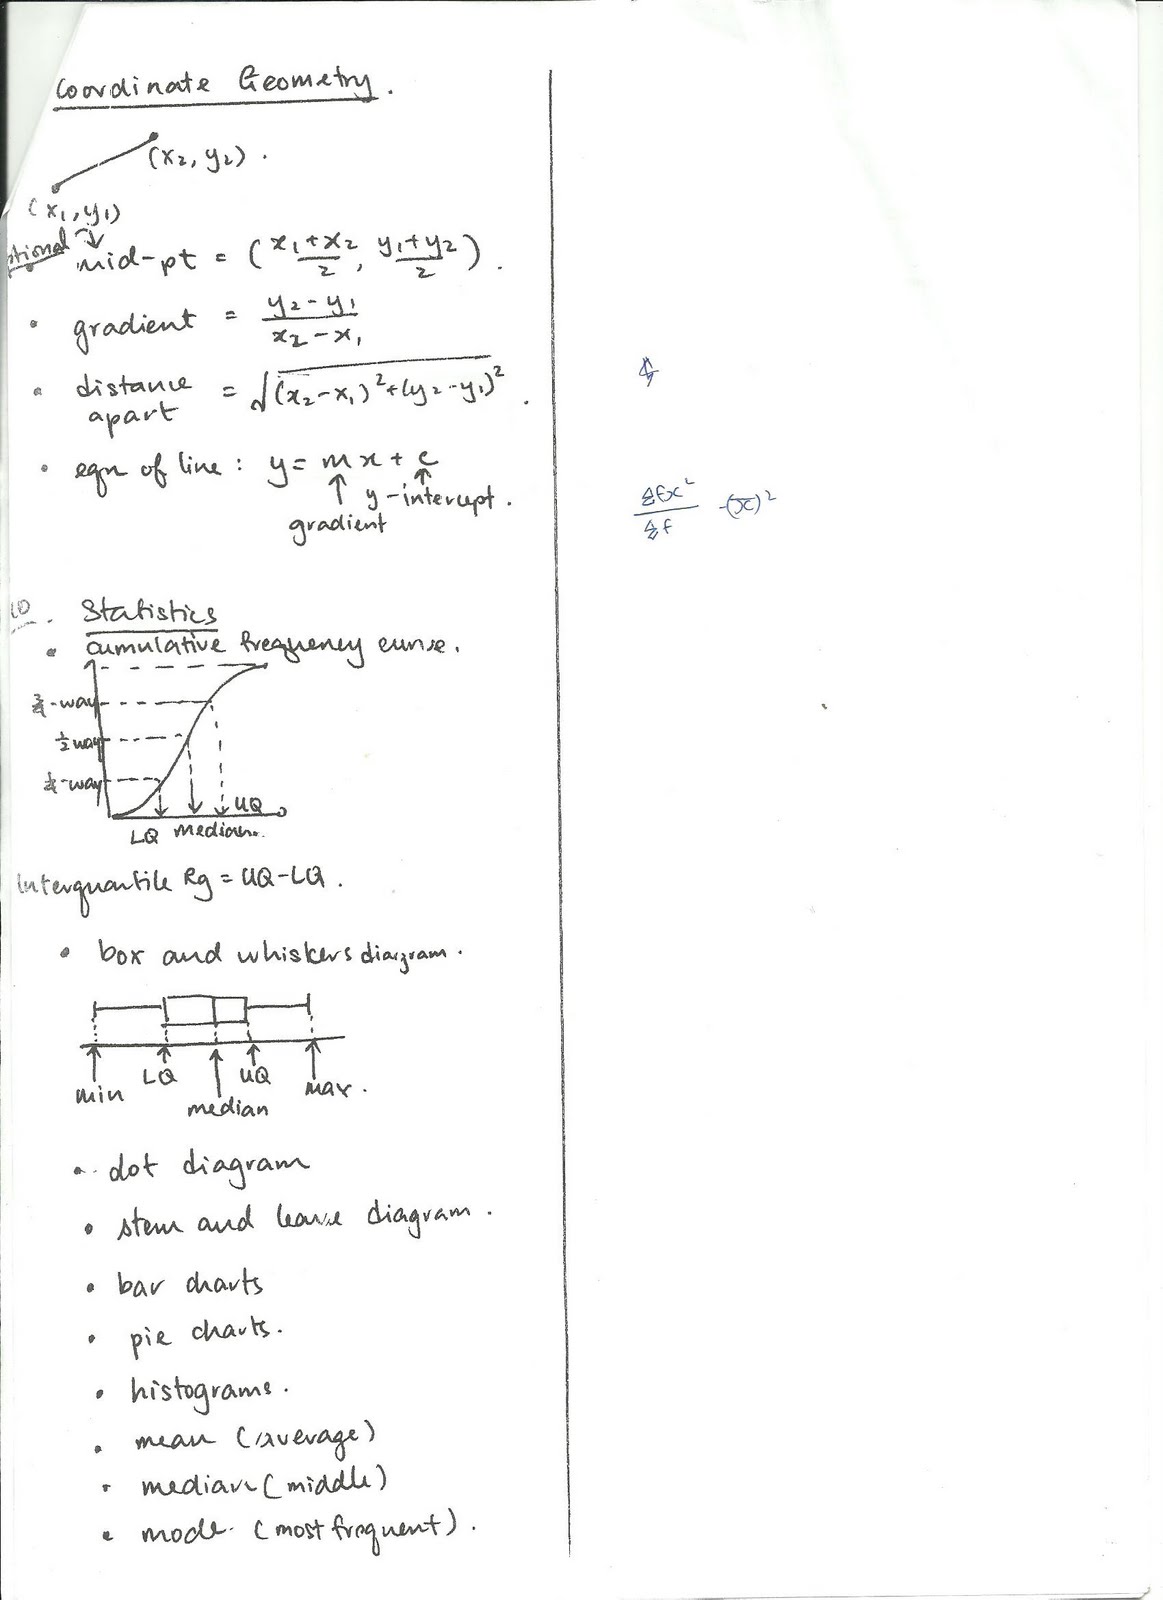 Coordinate Geometry.
(x₂, y₂).
(x₁, y₁)
mid-pt = (x₁+x₂/2, y₁+y₂/2).
• gradient = y₂-y₁/x₂-x₁
• distance apart = √(x₂-x₁)²+(y₂-y₁)².
• eqn of line: y = mx + c
y-intercept.
gradient
10. Statistics
• cumulative frequency curve.
3/4-way
1/2 way
1/4-way
UQ
LQ median.
Interquartile Rg = UQ-LQ.
• box and whiskers diagram.
min LQ median UQ max.
• dot diagram
• stem and leave diagram.
• bar charts
• pie charts.
• histograms.
• mean (average)
• median (middle)
• mode (most frequent).
Σfx²/Σf -(x̄)²